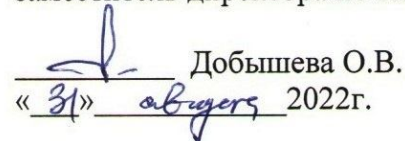 Добышева О.В.
«31» августа 2022г.